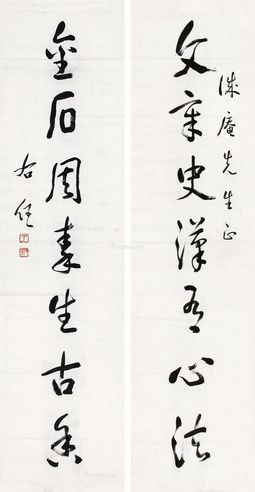 誠庵先生正
文章史漢有心法
金石周秦生古香
右任